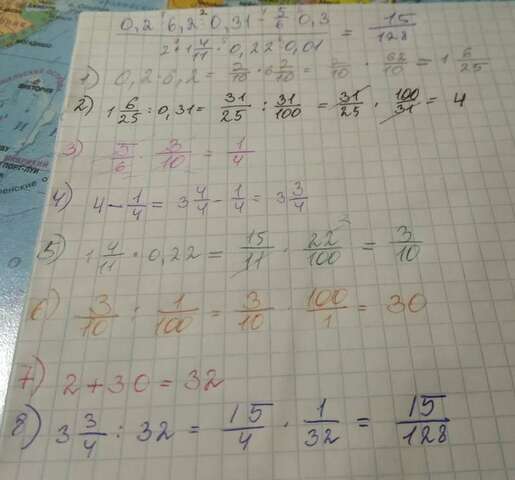 0,2·6,2:0,31-5/6·0,3
2+1 4/11·0,22:0,01 = 15/128
1) 0,2·6,2 = 2/10·6 2/10 = 2/10·62/10 = 1 6/25
2) 1 6/25 : 0,31 = 31/25 : 31/100 = 31/25 · 100/31 = 4
3) 5/6 · 3/10 = 1/4
4) 4 - 1/4 = 3 4/4 - 1/4 = 3 3/4
5) 1 4/11 · 0,22 = 15/11 · 22/100 = 3/10
6) 3/10 : 1/100 = 3/10 · 100/1 = 30
7) 2+30=32
8) 3 3/4 : 32 = 15/4 · 1/32 = 15/128